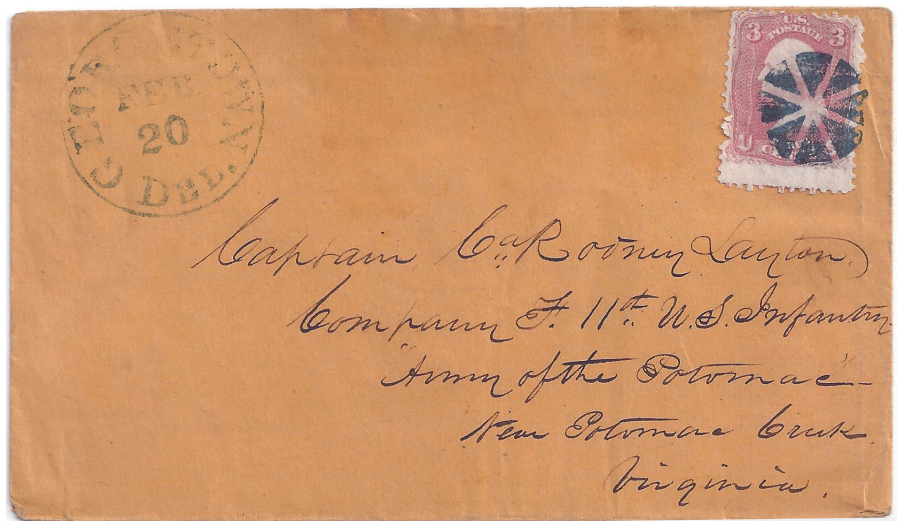 GEORGETOWN
FEB
20
DEL.
3 U.S. 3
POSTAGE
U
Captain Ca Rodney Layton
Company F. 11th U.S. Infantry
"Army of the Potomac"
Near Potomac Creek
Virginia.